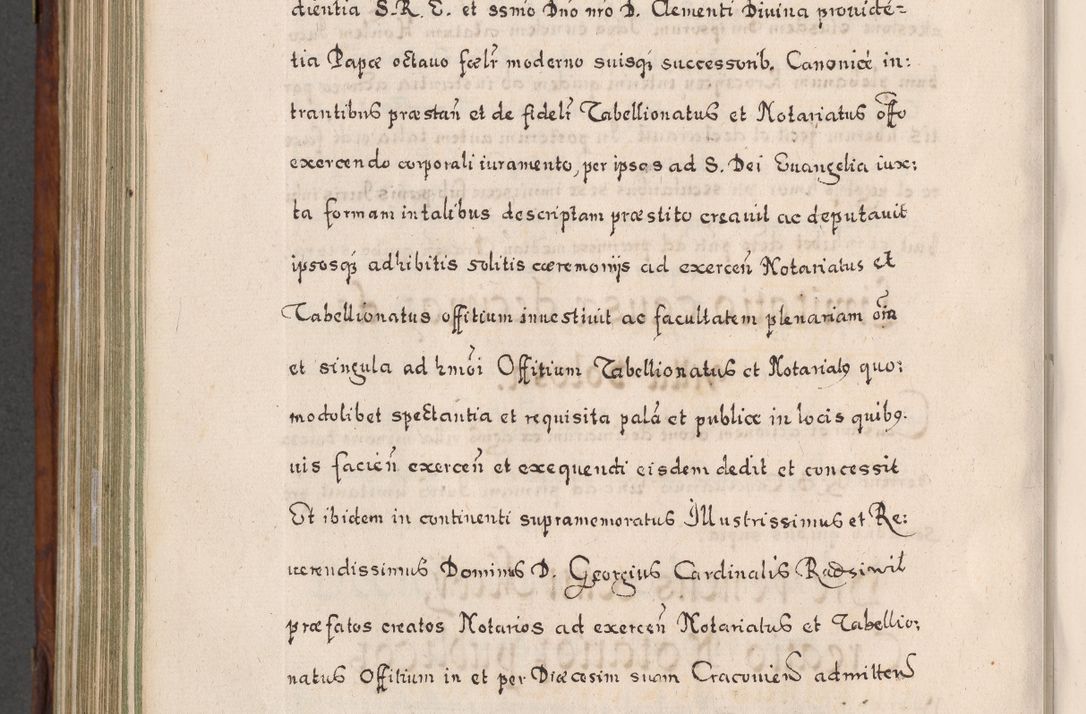 dientia S. R. E. et ssmo Dno nro D. Clementi Diuina prouidē-
tia Papæ octauo fœlr̃ moderno suisqʒ successorib. Canonicè in:
trantibus præstañ et de fidelr̃ Tabellionatus et Notariatus offo
exercendo corporali iuramento, per ipsos ad S. Dei Euangelia iux:
ta formam in talibus descriptam præstito creauit ac deputauit
ipsosqʒ adhibitis solitis cæremonijs ad exerceñ Notariatus et
Tabellionatus offitium inuestiuit ac facultatem plenariam oīa
et singula ad hmōi Offitium Tabellionatus et Notariatꝯ quo:
modolibet spectantia et requisita palā et publicæ in locis quibꝯ:
uis facieñ exerceñ et exequendi eisdem dedit et concessit
Et ibidem in continenti supramemoratus Illustrissimus et Re:
uerendissimus Dominus D. Georgius Cardinalis Radsiwil
præfatos creatos Notarios ad exerceñ Notariatus et Tabellio:
natus Offitium in et per Diæcesim suam Cracovieñ admitteñ